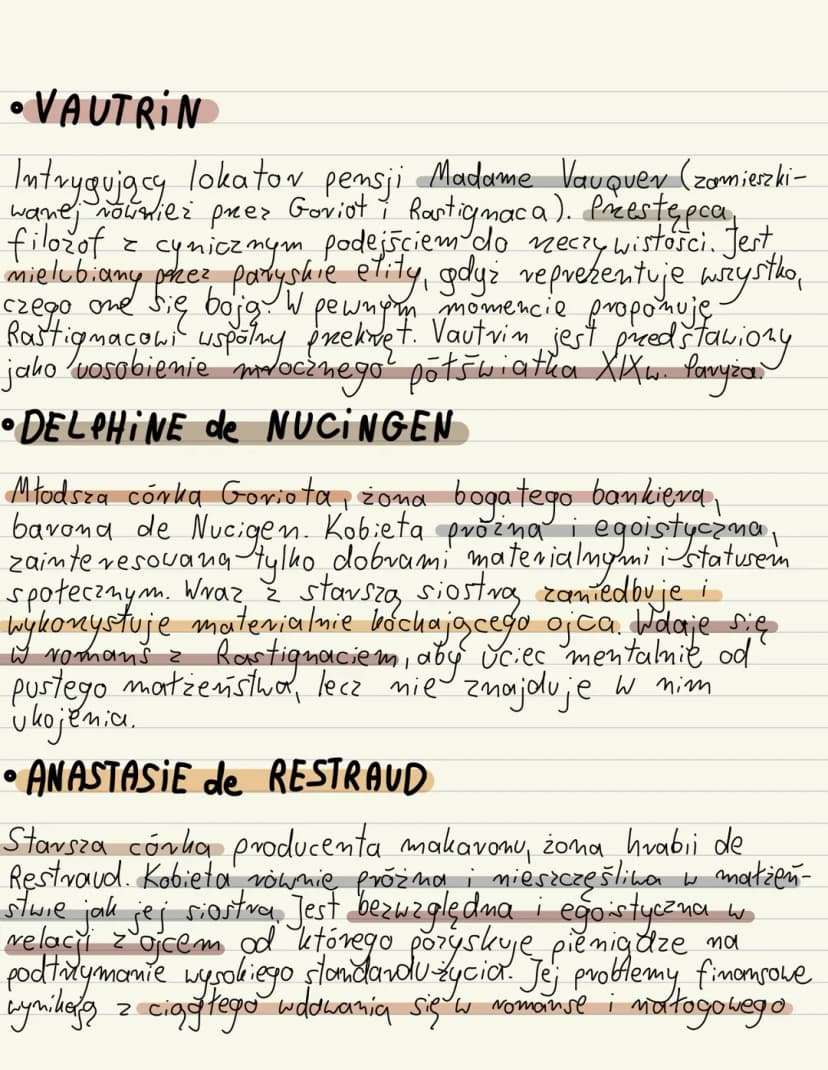 • VAUTRIN
Intrygujący lokator pensji Madame Vauquer (zamieszki-
wanej również przez Goriot i Rastignaca). Przestępca,
filozof z cynicznym podejściem do rzeczywistości. Jest
nielubiany przez paryskie elity, gdyż reprezentuje wszystko,
czego one się boją. W pewnym momencie proponuje
Rastignacowi wspólny przekręt. Vautrin jest przedstawiony
jako uosobienie mrocznego półświatka XIXw. Paryża.
• DELPHINE de NUCINGEN
Młodsza córka Goriota, żona bogatego bankiera,
barona de Nucigen. Kobieta próżna i egoistyczna,
zainteresowana tylko dobrami materialnymi i statusem
społecznym. Wraz z starszą siostrą zaniedbuje i
wykorzystuje materialnie kochającego ojca. Wdaje się
w romans z Rastignaciem, aby uciec mentalnie od
pustego małżeństwa, lecz nie znajduje w nim
ukojenia.
• ANASTASIE de RESTRAUD
Starsza córka producenta makaronu, żona hrabii de
Restraud. Kobieta równie próżna i nieszczęśliwa w małżeń-
stwie jak jej siostra. Jest bezwzględna i egoistyczna w
relacji z ojcem od którego pozyskuje pieniądze na
podtrzymanie wysokiego standardu życia. Jej problemy finansowe
wynikają z ciągłego wdawania się w romanse i nałogowego